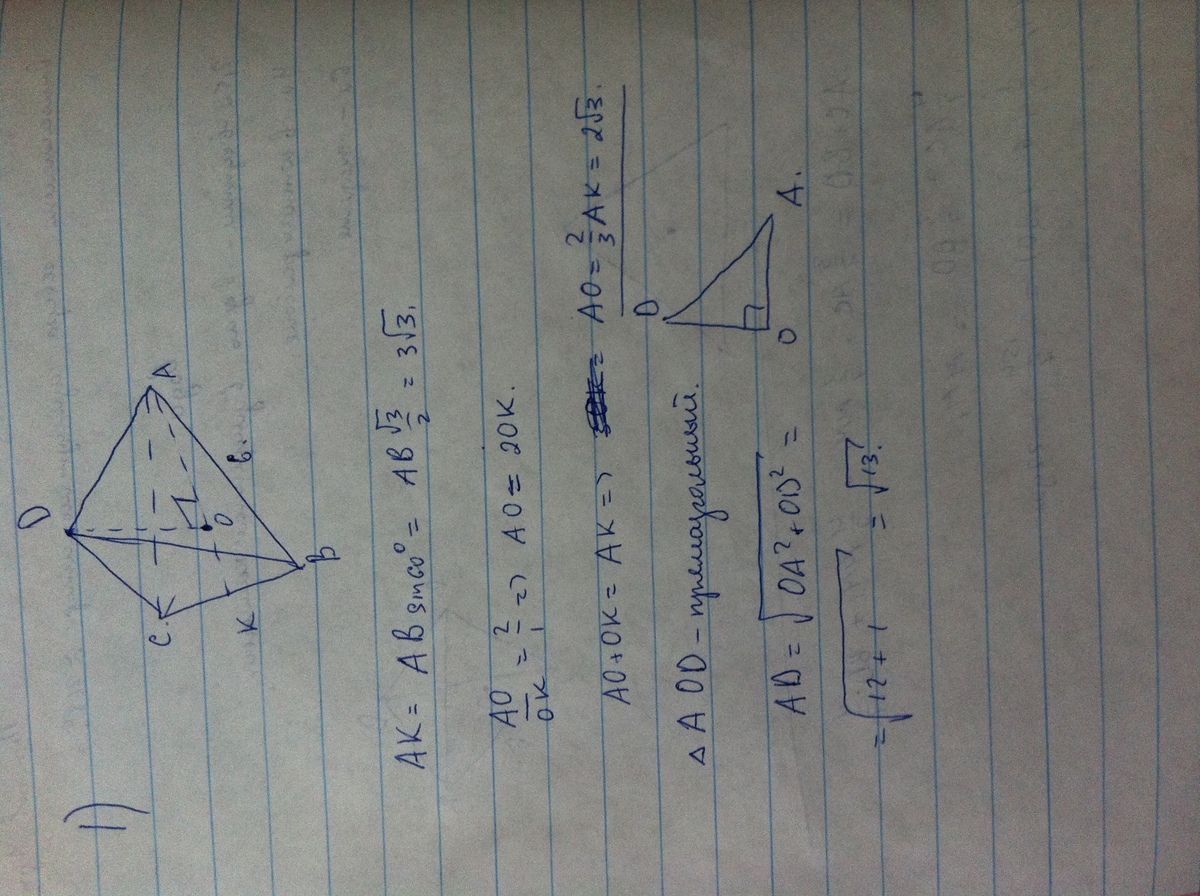 1)
D
A
C.
K
O
6.
B
AK = AB sin60° = AB √3/2 = 3√3.
AO/OK = 2/1 => AO = 2OK.
AO+OK = AK => AO = 2/3 AK = 2√3.
△ AOD – прямоугольный.
D
O
A.
AD = √(OA²+OD²) =
= √(12+1) = √13.